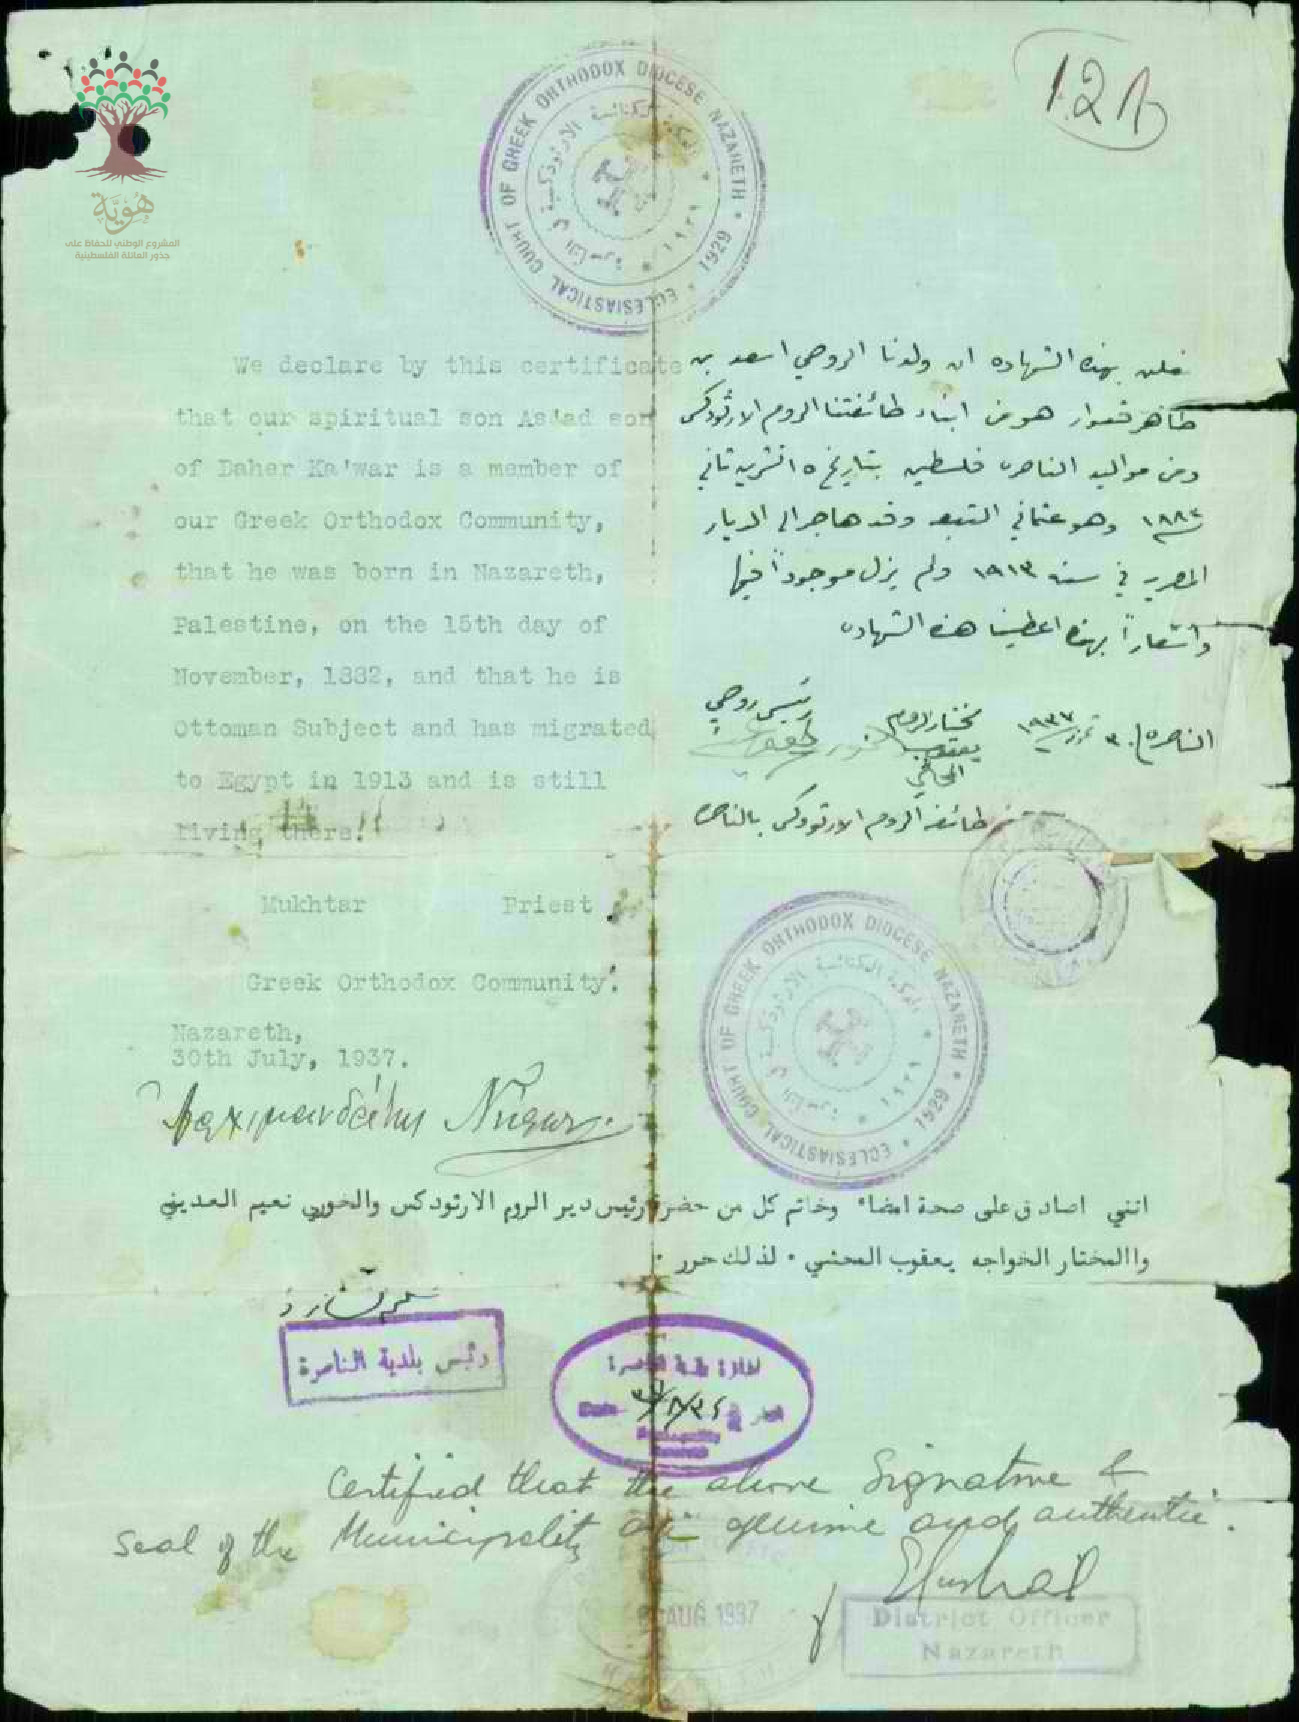 هُوِيَّة
المشروع الوطني للحفاظ على
جذور العائلة الفلسطينية
ECCLESIASTICAL COURT OF GREEK ORTHODOX DIOCESE NAZARETH • 1929 •
١٩٢٩
We declare by this certificate
that our spiritual son As'ad son
of Daher Ka'war is a member of
our Greek Orthodox Community,
that he was born in Nazareth,
Palestine, on the 15th day of
November, 1882, and that he is
Ottoman Subject and has migrated
to Egypt in 1913 and is still
living there.
نعلن بهذه الشهاده ان ولدنا الروحي اسعد بن
ظاهر قعوار هو من ابناء طائفتنا الروم الارثوذكس
ومن مواليد الناصره فلسطين بتاريخ ١٥ تشرين تاني
١٨٨٢ وهو عثماني التبعه وقد هاجر الى الديار
المصريه في سنه ١٩١٣ ولم يزل موجوداً فيها
واشعاراً بهذه اعطينا هذه الشهاده
الناصره ٣٠ تموز ١٩٣٧
مختار الروم
رئيس روحي
يعقوب
طائفة الروم الارثوذكس بالناصره
Mukhtar Priest
Greek Orthodox Community.
Nazareth,
30th July, 1937.
ECCLESIASTICAL COURT OF GREEK ORTHODOX DIOCESE NAZARETH • 1929 •
١٩٢٩
انني اصادق على صحة امضاء وخاتم كل من حضرة رئيس دير الروم الارثودكس والخوري نعيم العديني
واالمختار الخواجه يعقوب المحشي • لذلك حرر •
رئيس بلدية الناصرة
Date
Certified that the above Signature &
Seal of the Municipality are genuine and authentic.
AUG 1937
District Officer
Nazareth